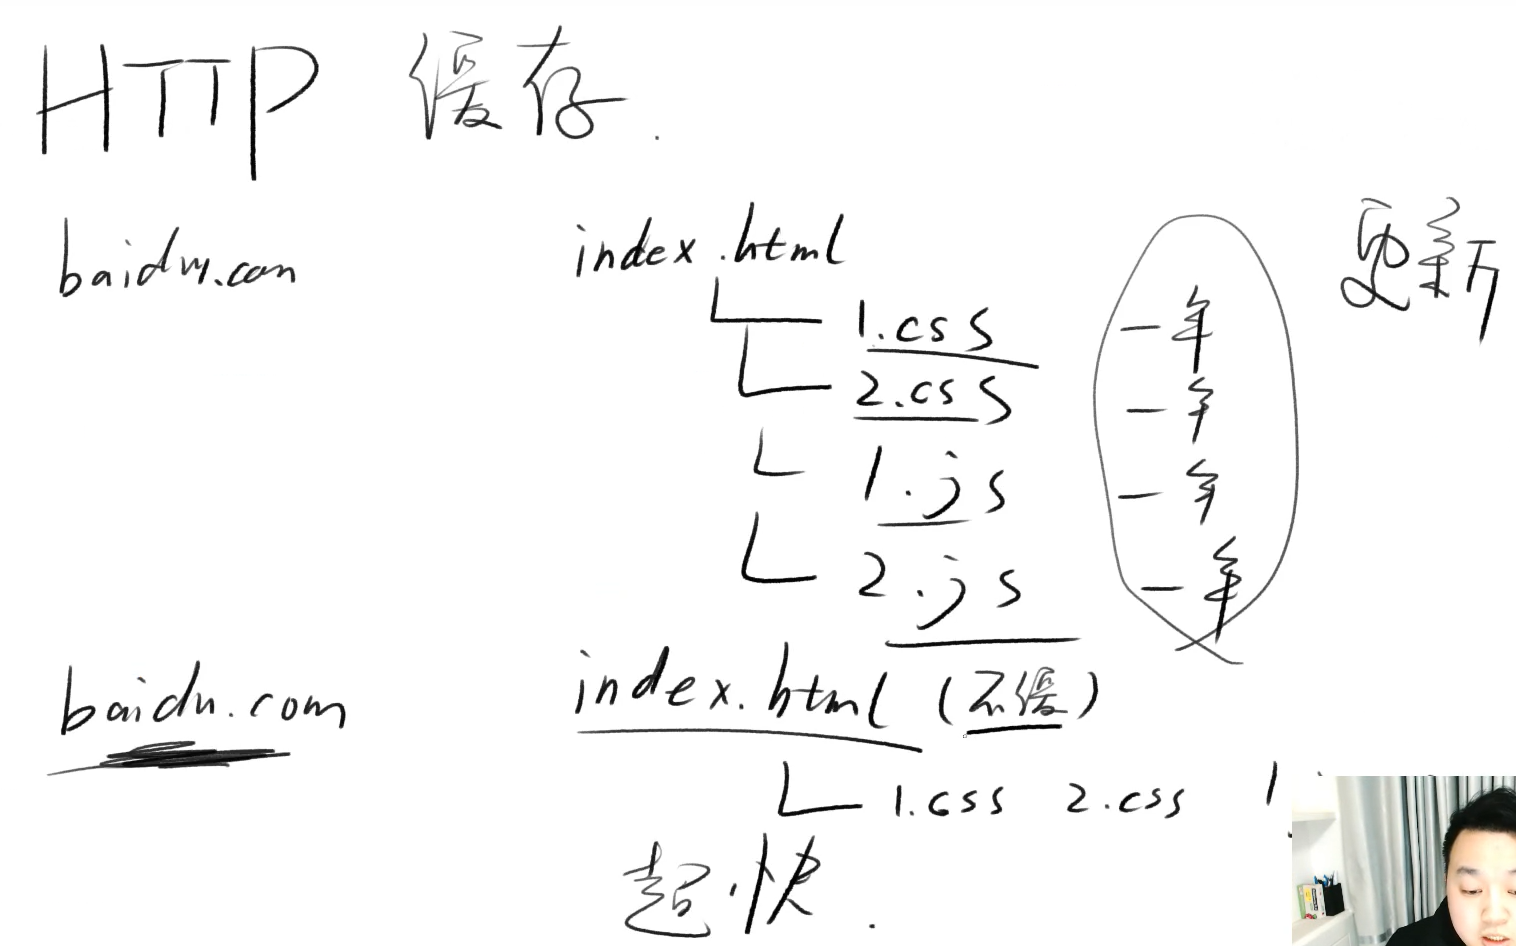 HTTP 缓存.
baidu.com index.html 更新
1.css 一年
2.css 一年
1.js 一年
2.js 一年
baidu.com index.html (不缓)
1.css 2.css 1.
超快.